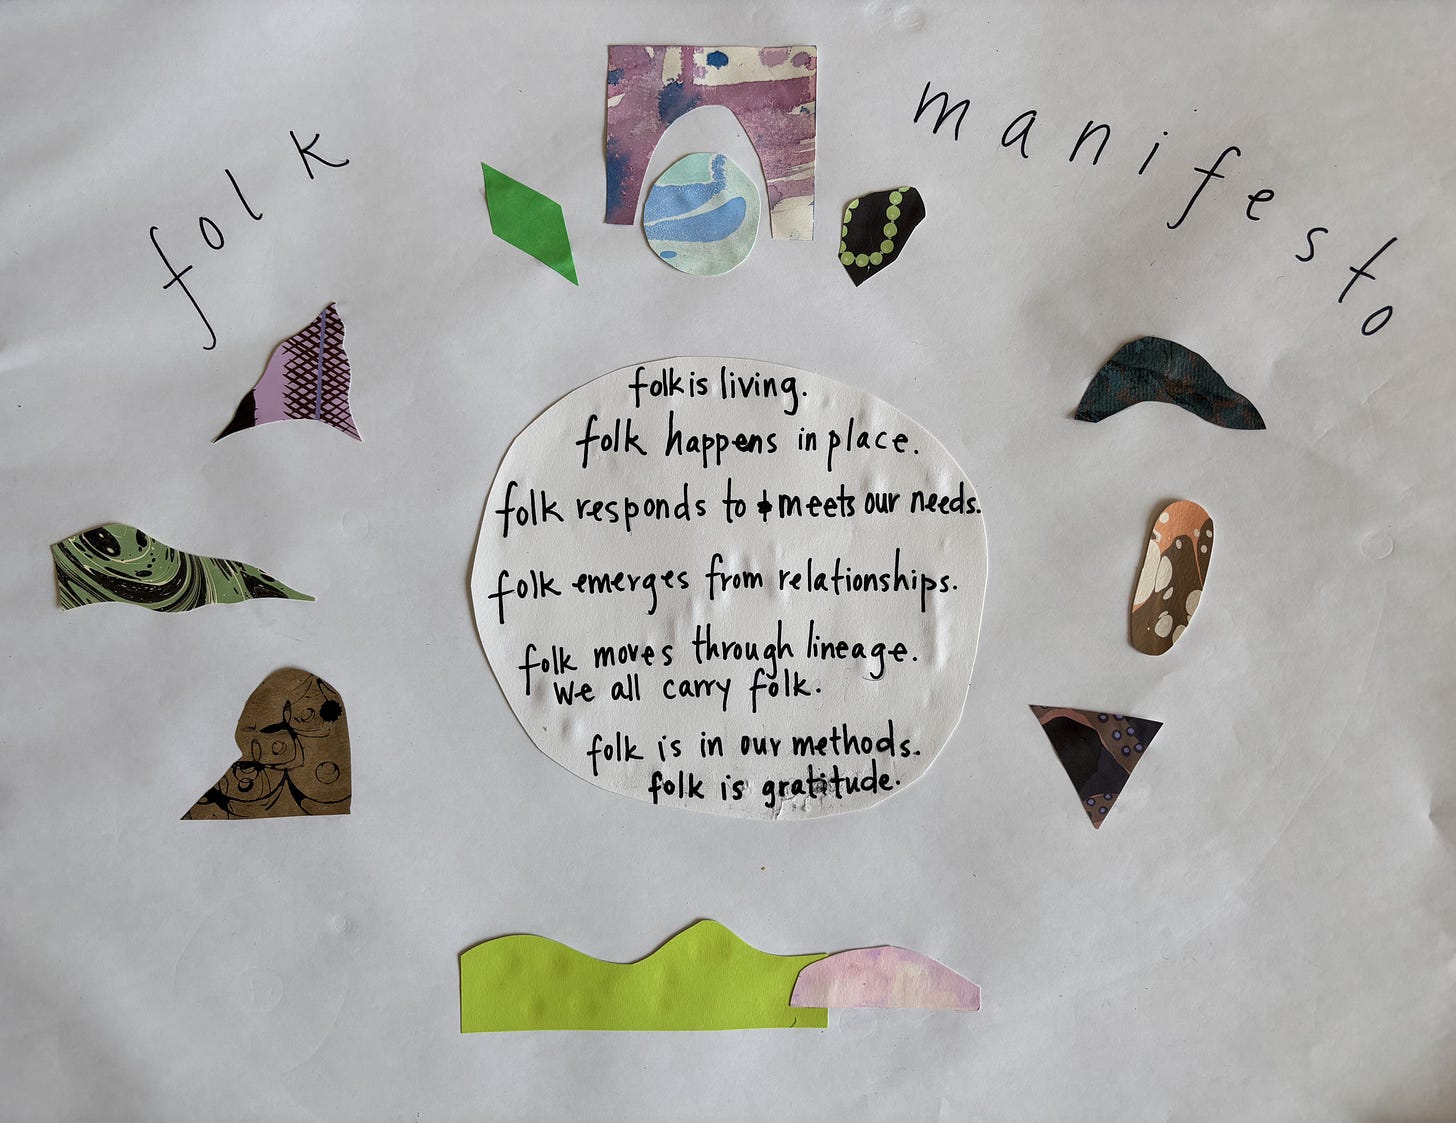 folk manifesto
folk is living.
folk happens in place.
folk responds to & meets our needs.
folk emerges from relationships.
folk moves through lineage.
we all carry folk.
folk is in our methods.
folk is gratitude.